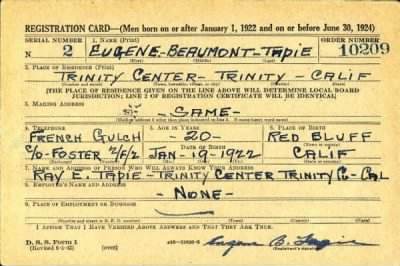 REGISTRATION CARD—(Men born on or after January 1, 1922 and on or before June 30, 1924)
SERIAL NUMBER 1. NAME (Print) ORDER NUMBER
N 2 EUGENE-BEAUMONT-TAPIE 10209
(First) (Middle) (Last)
2. PLACE OF RESIDENCE (Print)
TRINITY CENTER - TRINITY - CALIF
[THE PLACE OF RESIDENCE GIVEN ON THE LINE ABOVE WILL DETERMINE LOCAL BOARD
JURISDICTION; LINE 2 OF REGISTRATION CERTIFICATE WILL BE IDENTICAL]
3. MAILING ADDRESS
- SAME -
4. TELEPHONE 5. AGE IN YEARS 6. PLACE OF BIRTH
FRENCH GULCH - 20 - RED BLUFF
C/O FOSTER 2/F/2 JAN-10-1922 CALIF
7. NAME AND ADDRESS OF PERSON WHO WILL ALWAYS KNOW YOUR ADDRESS
RAY E. TAPIE - TRINITY CENTER TRINITY CO-CAL
8. EMPLOYER'S NAME AND ADDRESS
- NONE -
9. PLACE OF EMPLOYMENT OR BUSINESS
I AFFIRM THAT I HAVE VERIFIED ABOVE ANSWERS AND THAT THEY ARE TRUE.
D. S. S. Form 1
(over)
Eugene B. Tapie